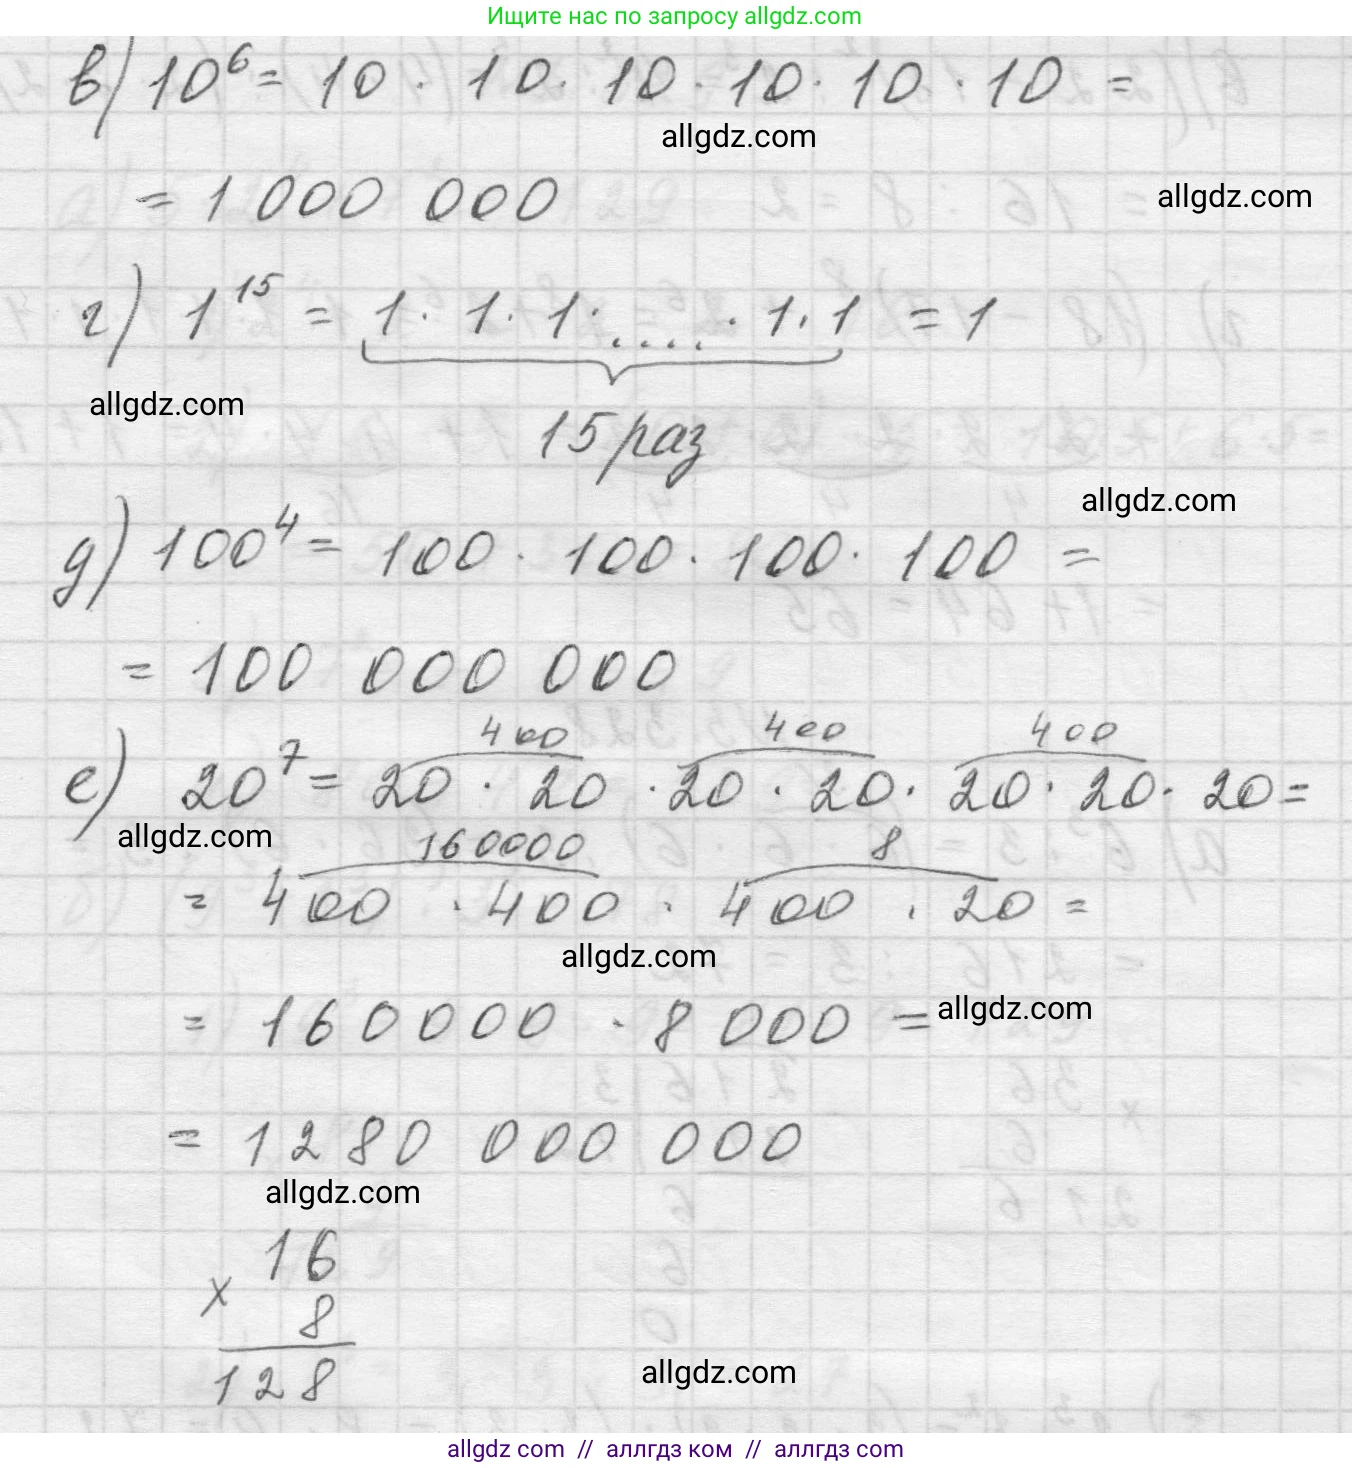 Ищите нас по запросу allgdz.com
в) 10⁶ = 10 · 10 · 10 · 10 · 10 · 10 =
allgdz.com
= 1 000 000
allgdz.com
г) 1¹⁵ = 1 · 1 · 1 · .... · 1 · 1 = 1
allgdz.com
15 раз
allgdz.com
д) 100⁴ = 100 · 100 · 100 · 100 =
= 100 000 000
400 400 400
е) 20⁷ = 20 · 20 · 20 · 20 · 20 · 20 · 20 =
allgdz.com
160000 8
= 400 · 400 · 400 · 20 =
allgdz.com
= 160000 · 8 000 =
allgdz.com
= 1280 000 000
allgdz.com
16
x
8
128
allgdz.com
allgdz com // аллгдз ком // аллгдз com